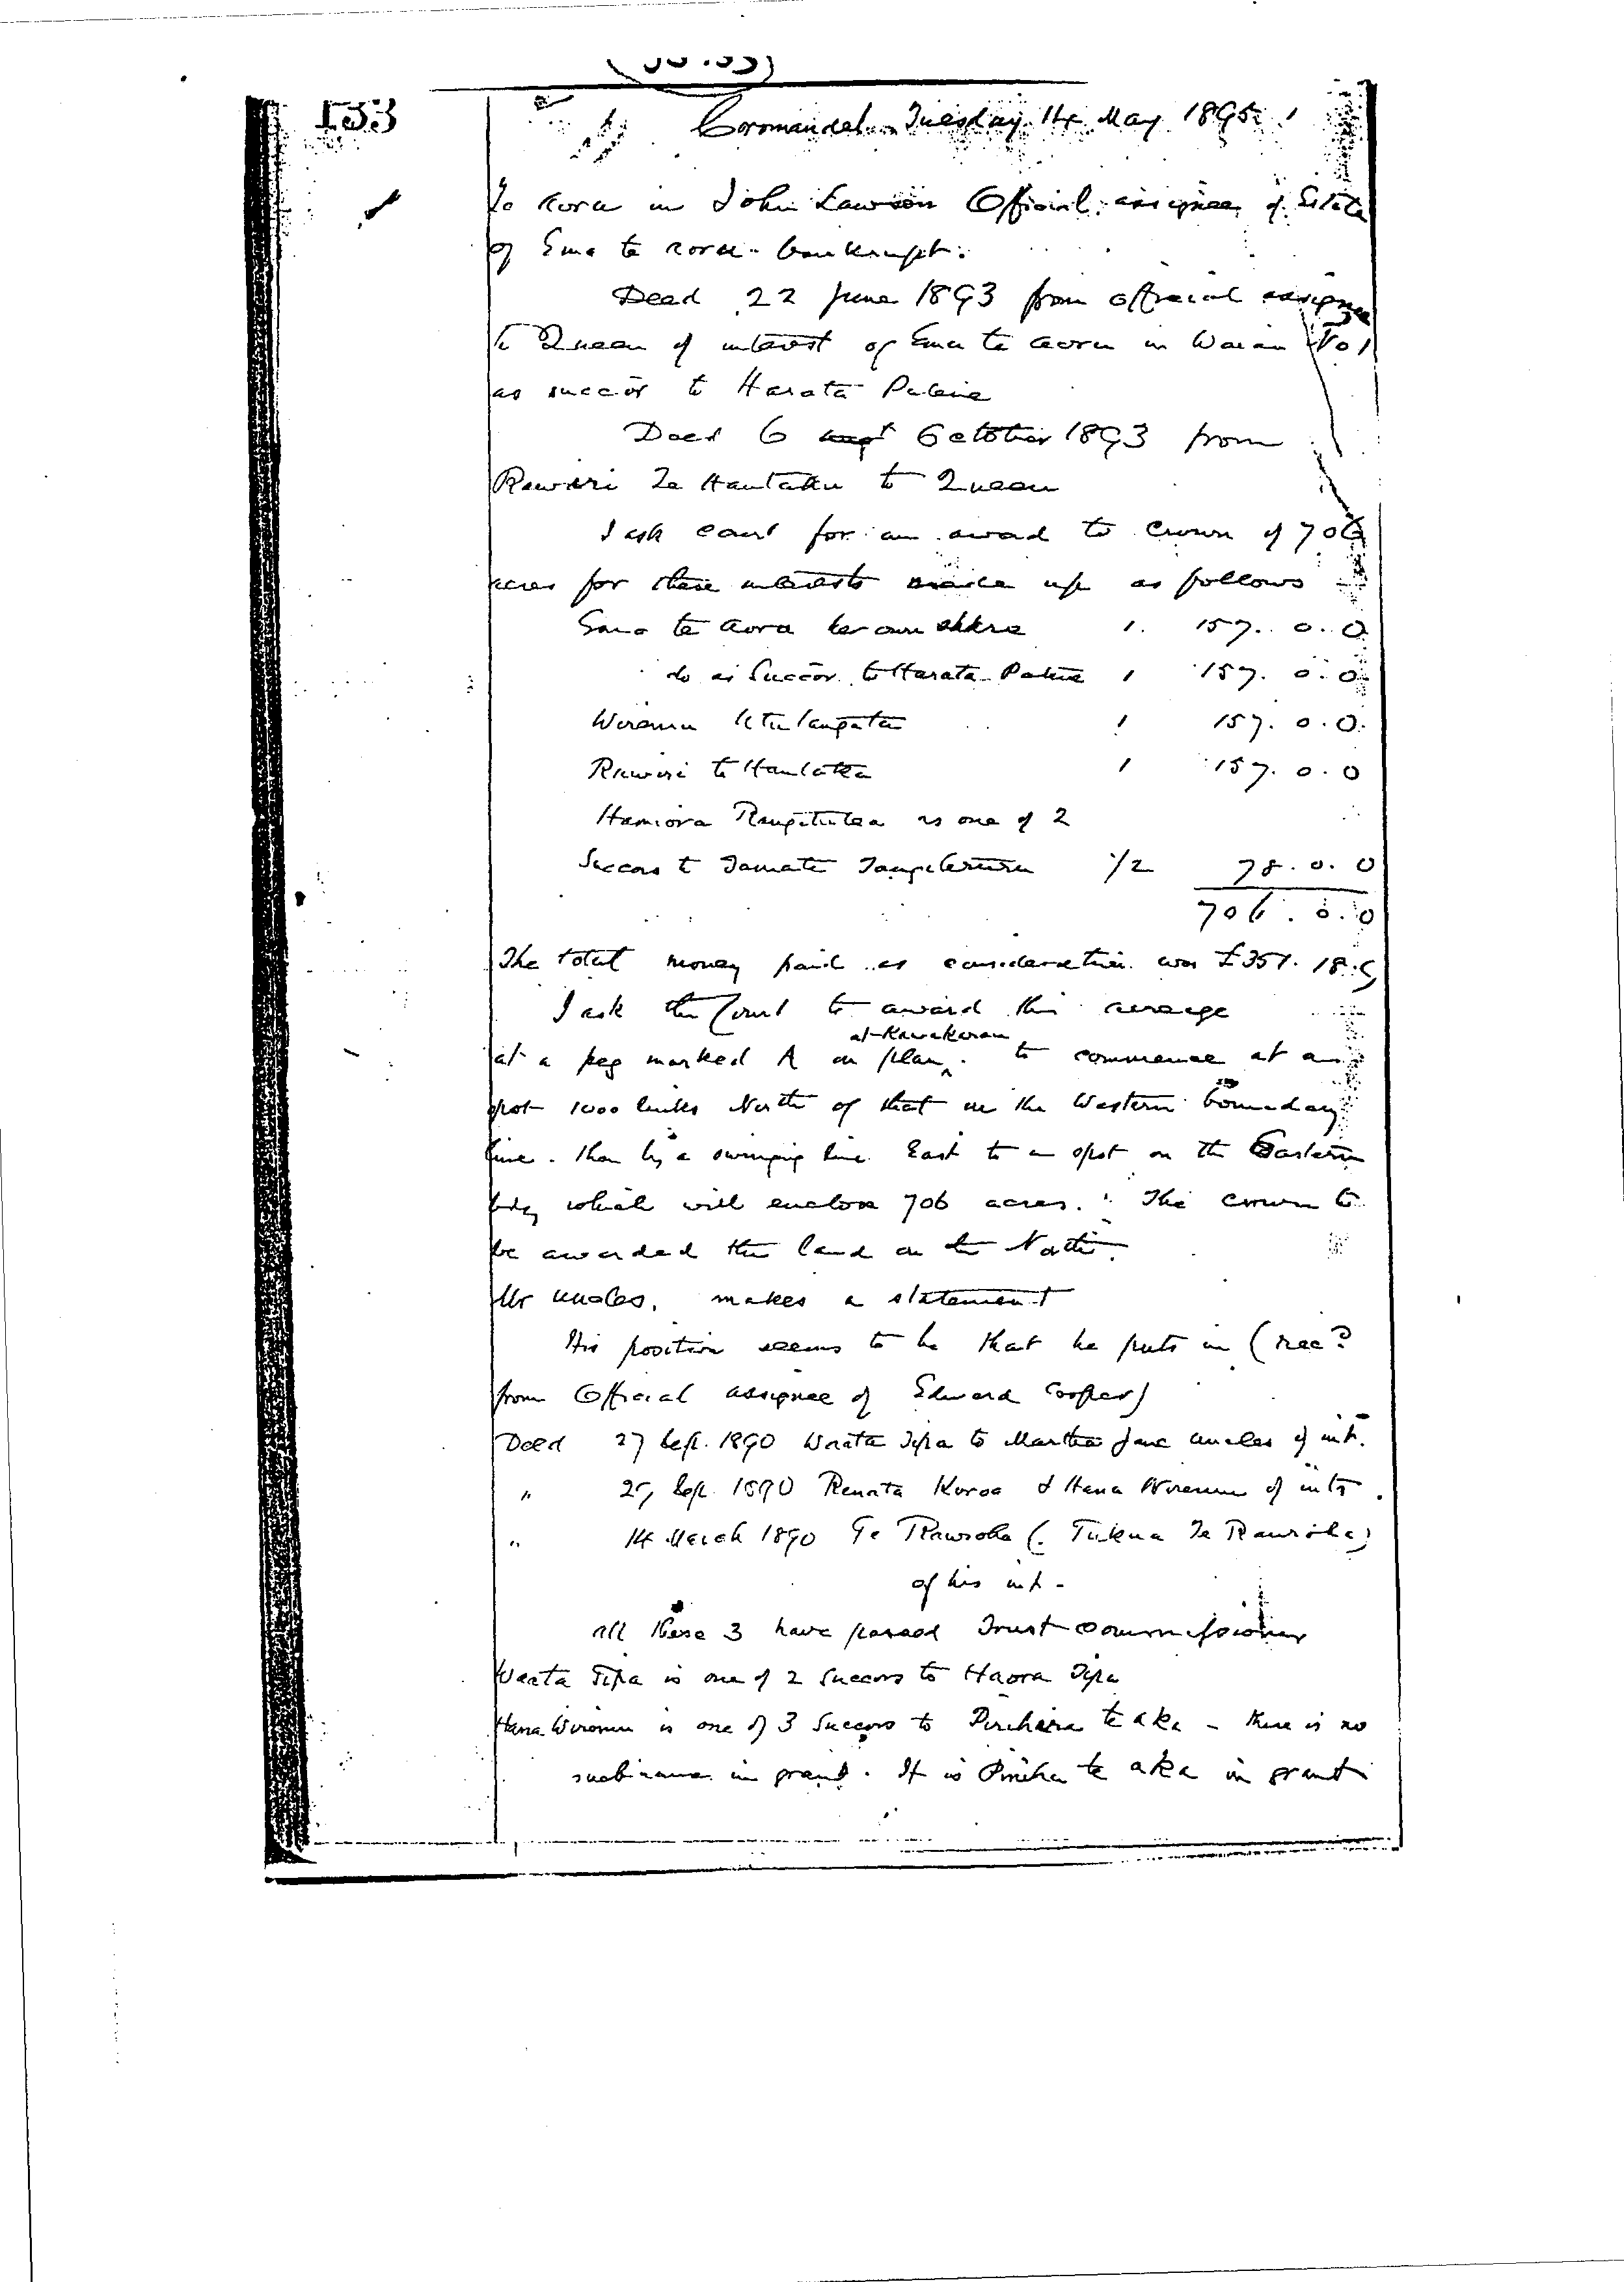 133
Coromandel. Tuesday 14 May 1895.
Te Aora in John Lawson Official assignee of Estate
of Ema te Aora - bankrupt.
Deed 22 June 1893 from official assignee
to Queen of interest of Ema te Aora in Waiau No 1
as succor to Harata Patene
Deed 6 October 1893 from
Rawiri Te Hautaku to Queen
I ask court for an award to Crown of 706
acres for these interests made up as follows
Ema te Aora her own share 1. 157. 0. 0
do as Succor to Harata Patene 1 157. 0. 0
Wiremu 1 157. 0. 0.
Rawiri te Hautaku 1 157. 0. 0
Hamiora as one of 2
Succors to Tamate 1/2 78. 0. 0
706. 0. 0
The total money paid as consideration was £351. 18. 9
I ask the Court to award this acreage
at Kawakawa
at a peg marked A on plan. to commence at a
spot 1000 links North of that on the Western boundary
line. then by a swinging line East to a spot on the Eastern
bdy which will enclose 706 acres. The crown to
be awarded the land on the North.
Mr Uncles. makes a statement
His position seems to be that he puts in (rec?
from Official assignee of Edward Cooper)
Deed 27 Sept. 1890 Waata Tipa to Martha Jane Uncles of int.
" 27 Sept. 1890 Renata Koroa & Hana Wiremu of ints.
" 14 March 1890 Te Rauroha (Tukua Te Rauroha)
of his int -
all these 3 have passed Trust Commissioner
Waata Tipa is one of 2 Succors to Haora Tipa
Hana Wiremu is one of 3 Succors to te aka - there is no
such name in grant. It is Piniha te aka in grant